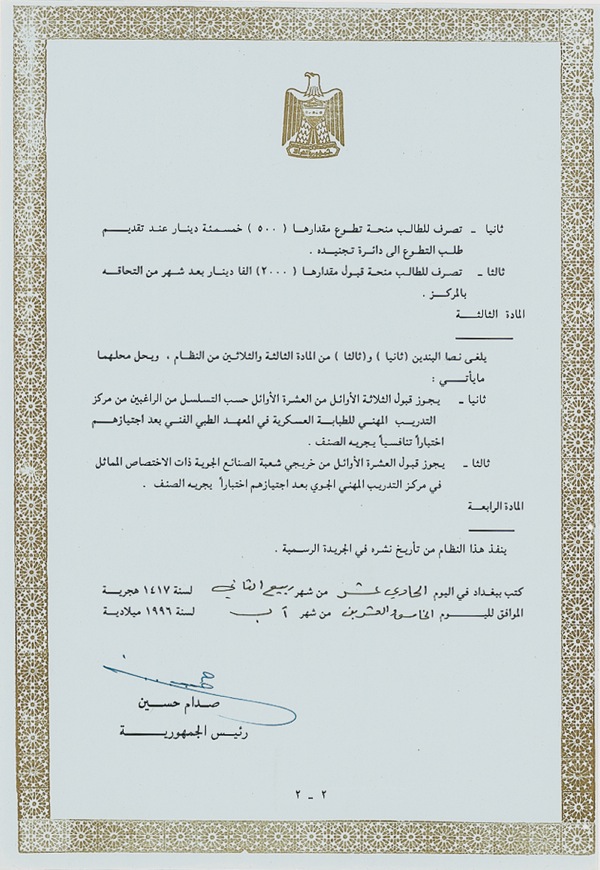 ثانيا - تصرف للطالب منحة تطوع مقدارها ( ٥٠٠ ) خمسمئة دينار عند تقديم
طلب التطوع الى دائرة تجنيده .
ثالثا - تصرف للطالب منحة قبول مقدارها ( ٢٠٠٠ ) الفا دينار بعد شهر من التحاقه
بالمركز .
المادة الثالثة
يلغى نصا البندين (ثانيا ) و(ثالثا ) من المادة الثالثة والثلاثين من النظام ، ويحل محلهما
مايأتي :
ثانيا - يجوز قبول الثلاثة الأوائل من العشرة الأوائل حسب التسلسل من الراغبين من مركز
التدريب المهني للطبابة العسكرية في المعهد الطبي الفني بعد اجتيازهم
اختباراً تنافسياً يجريه الصنف .
ثالثا - يجوز قبول العشرة الأوائل من خريجي شعبة الصنائع الجوية ذات الاختصاص المماثل
في مركز التدريب المهني الجوي بعد اجتيازهم اختباراً يجريه الصنف .
المادة الرابعة
ينفذ هذا النظام من تأريخ نشره في الجريدة الرسمية .
كتب ببغداد في اليوم الحادي عشر من شهر ربيع الثاني لسنة ١٤١٧ هجرية
الموافق لليوم الخامس والعشرين من شهر آب لسنة ١٩٩٦ ميلادية
صدام حسين
رئيس الجمهورية
٢ - ٢